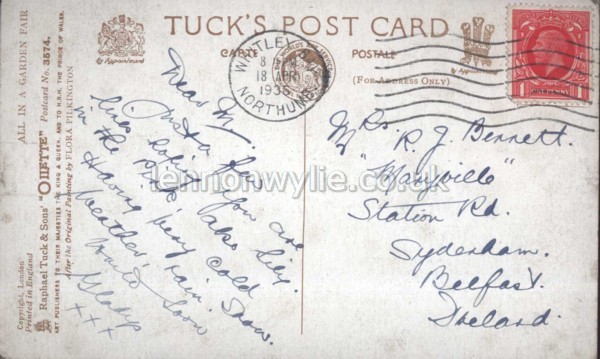 TUCK'S POST CARD
CARTE POSTALE
(FOR ADDRESS ONLY)
By Appointment
WHITLEY BAY
8
18 APR
1935
NORTHUMB
Mrs. R. J. Bennett.
"Maryville"
Station Rd.
Sydenham.
Belfast.
Ireland.
Dear M,
Just a few
lines
you are
in the Pink, also Lily.
Having very cold
weather, rain. Snow.
Write Soon
Gladys
x x x
ALL IN A GARDEN FAIR
Raphael Tuck & Sons' "OILETTE" Postcard No. 3574.
ART PUBLISHERS TO THEIR MAJESTIES THE KING & QUEEN, AND TO H.R.H. THE PRINCE OF WALES.
After the Original Painting by FLORA PILKINGTON
Copyright, London
Printed in England
lennonwylie.co.uk